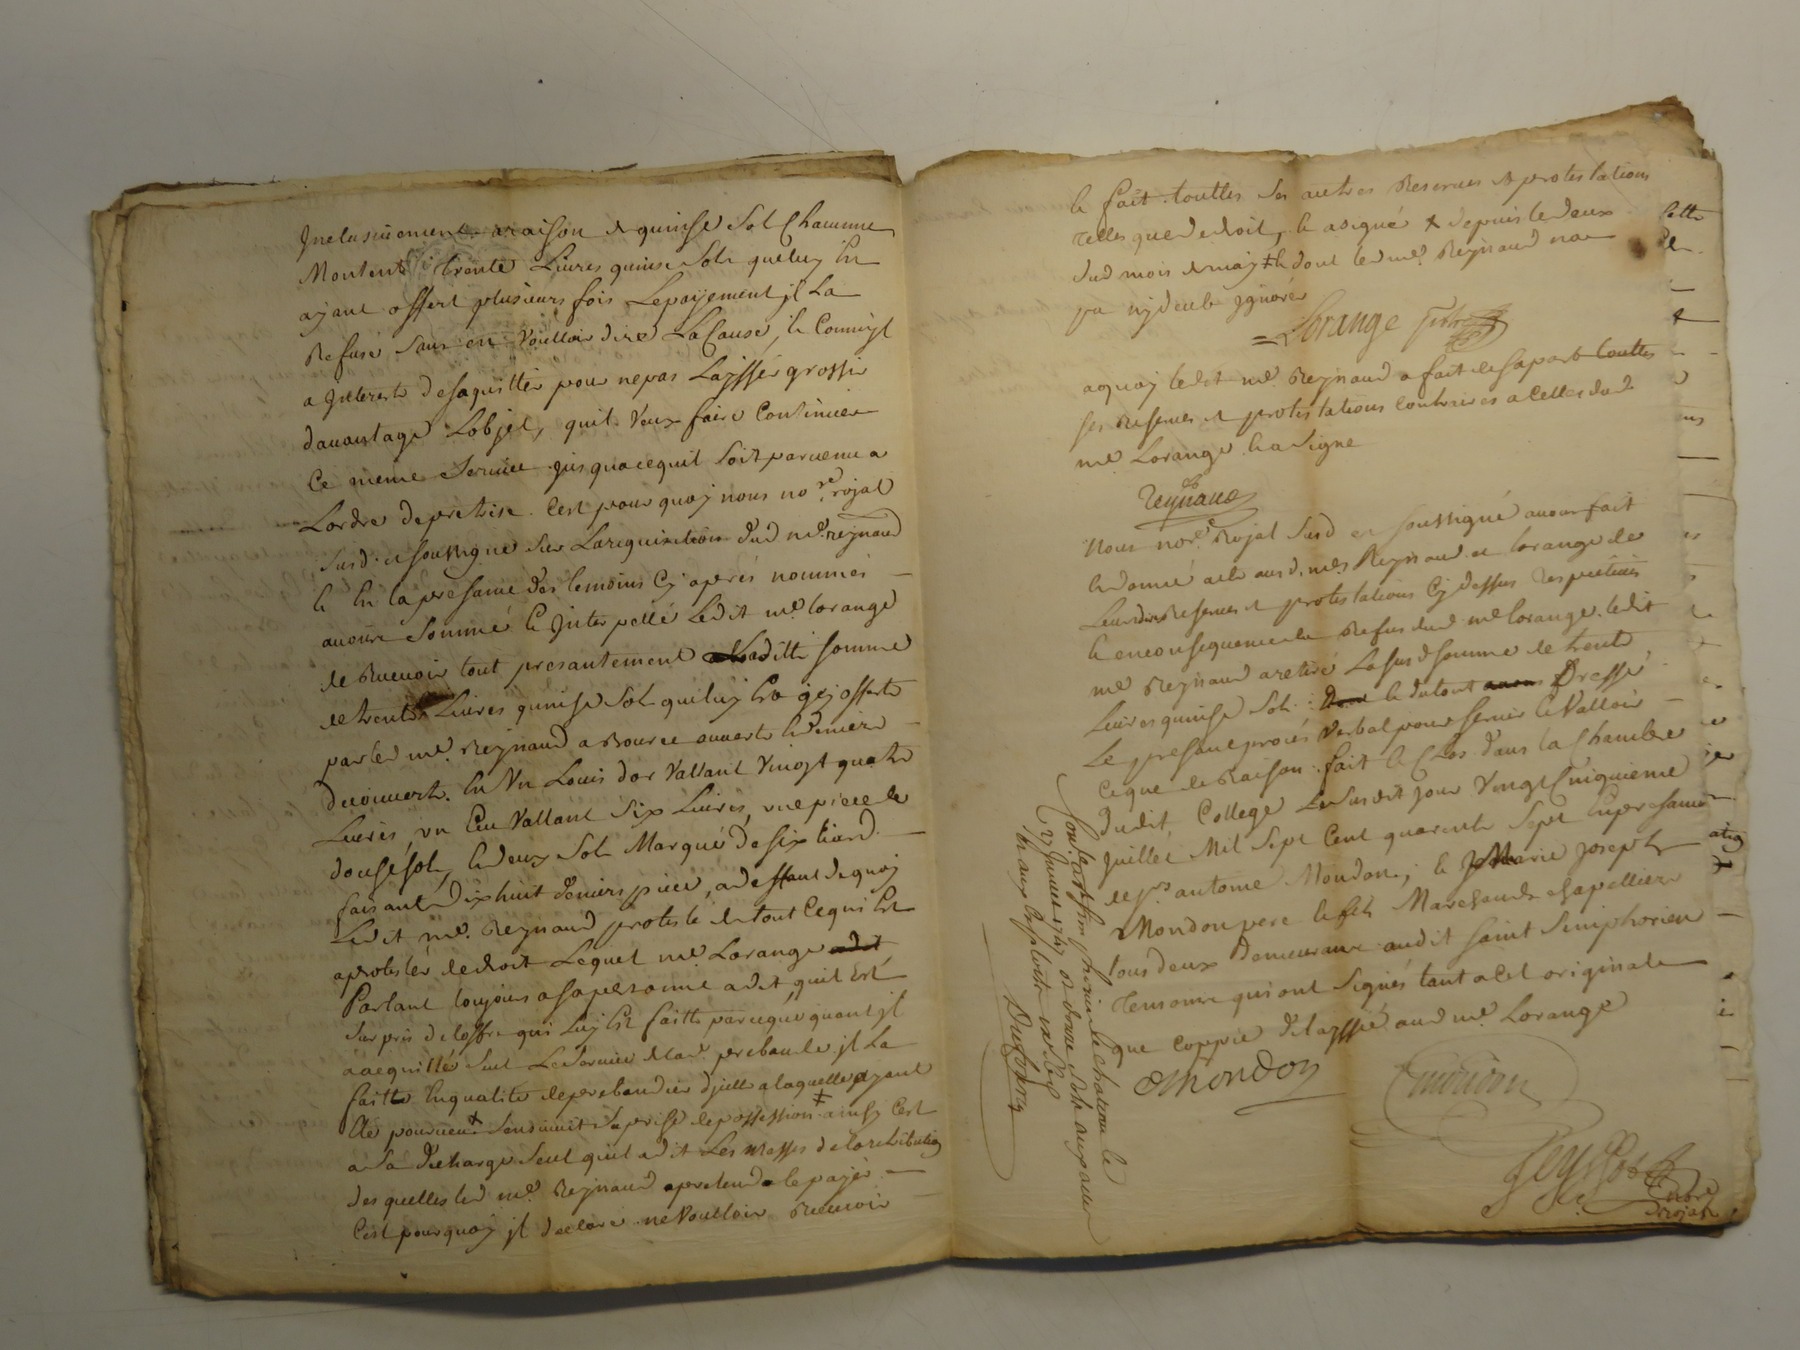 Inclusivement a raison de quinse Sol Chacunne
Montent trente Livres quinse Sols queluy En
ayant offert plusieurs fois Lepayement jl La
Refusé Sans en Voulloir dire La Cause, le Commyl
a Jnterest desaquitter pour nepas Laysser grossir
davantage Lobjet, quil Veux faire Continuer
Ce meme Service jusquacequil Soit parvenu a
Lordre depretrise. Cest pourquoy nous no.re royal
Susd. et soussigné sur Larequisition dud me. reynaud
le En lapresance des temoins Cy apres nommés
avons Sommé le Jnterpellé Ledit me. lorange
de Recevoir tout presantement Laditte somme
detrente Livres quinse Sols quiluy Est jcy offerte
par led me. Reynaud a Bource ouverte le denier
decouvert. En Un Louis dor Vallant Vingt quatre
Livres, un Ecu Vallant Six Livres, une piece de
douse sols, le deux Sols Marqué de six liard
faisant dixhuit deniers piece, adeffaut dequoy
Ledit me. Reynaud proteste de tout Cequi Est
aprotester dedroit Lequel me. Lorange
Parlant toujours asapersonne adit quil Est
Surpris deloffre qui Luy Est faitte parceque quant jl
aacquitté Led Service delad. prebande jl La
faitte Enqualité deprebandier djcelle alaquelle ayant
eté pourveu Sensuivit saprisse depossession ainsy Cest
a Sa decharge Seul quil adit Les Messes delaretribution
des quelles led me. Reynaud apretend le payer
Cest pourquoy jl declare ne Voulloir Recevoir
le fait touttes Ses autres Reserves et protestations
Telles que dedroit, le asigné depuis ledeux
dud mois de may dont led me. Reynaud na
pu nydeub Jgnorer
Lorange
aquoy ledit me. Reynaud afait desapart touttes
ses Reserves et protestations Contraires a Celles dud
me. Lorange le a Signe
Reynaud
Nous no.re Royal Susd et soussigné avons fait
le donné acte ausd. mes. Reynaud et lorange de
Leurs dires Reserves et protestations Cy dessus respectives
le enconsequence du Refus dud me lorange. ledit
me Reynaud aretiré Lasusd somme de trente
Livres quinse Sols le dutout Dressé
Le presant procés Verbal pour Servir le Valloir
Ceque de Raison. fait le Clos dans la Chambre
dudit College LeSusdit jour Vingt Cinquieme
Juillet Mil Sept Cent quarante Sept Enpresance
de srs antoine Mondon, le Marie Joseph
Mondon pere le fils Marchands chapelliers
tous deux Demeurans audit Saint Simphorien
Temoins qui ont Signés tant acet original
que Coppie delayssée aud me. Lorange
Mondon
Mondon
no.re
royal
Con.lé a st simphorien le chateau le
27 Juillet 1747